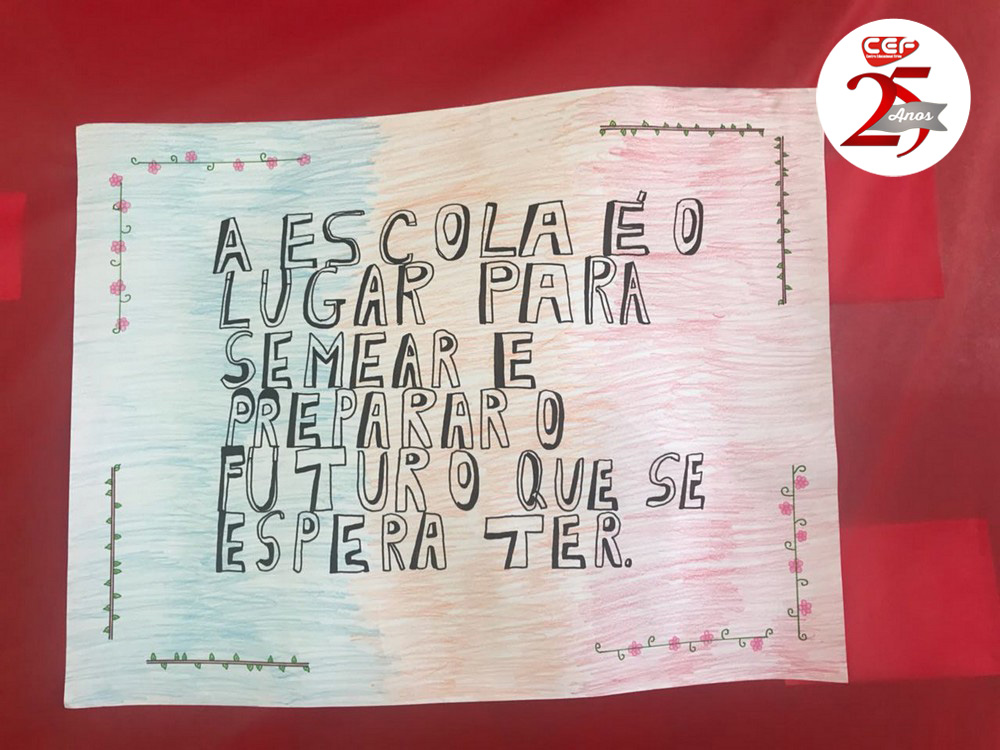 CEF
25
Anos
A ESCOLA É O
LUGAR PARA
SEMEAR E
PREPARAR O
FUTURO QUE SE
ESPERA TER.